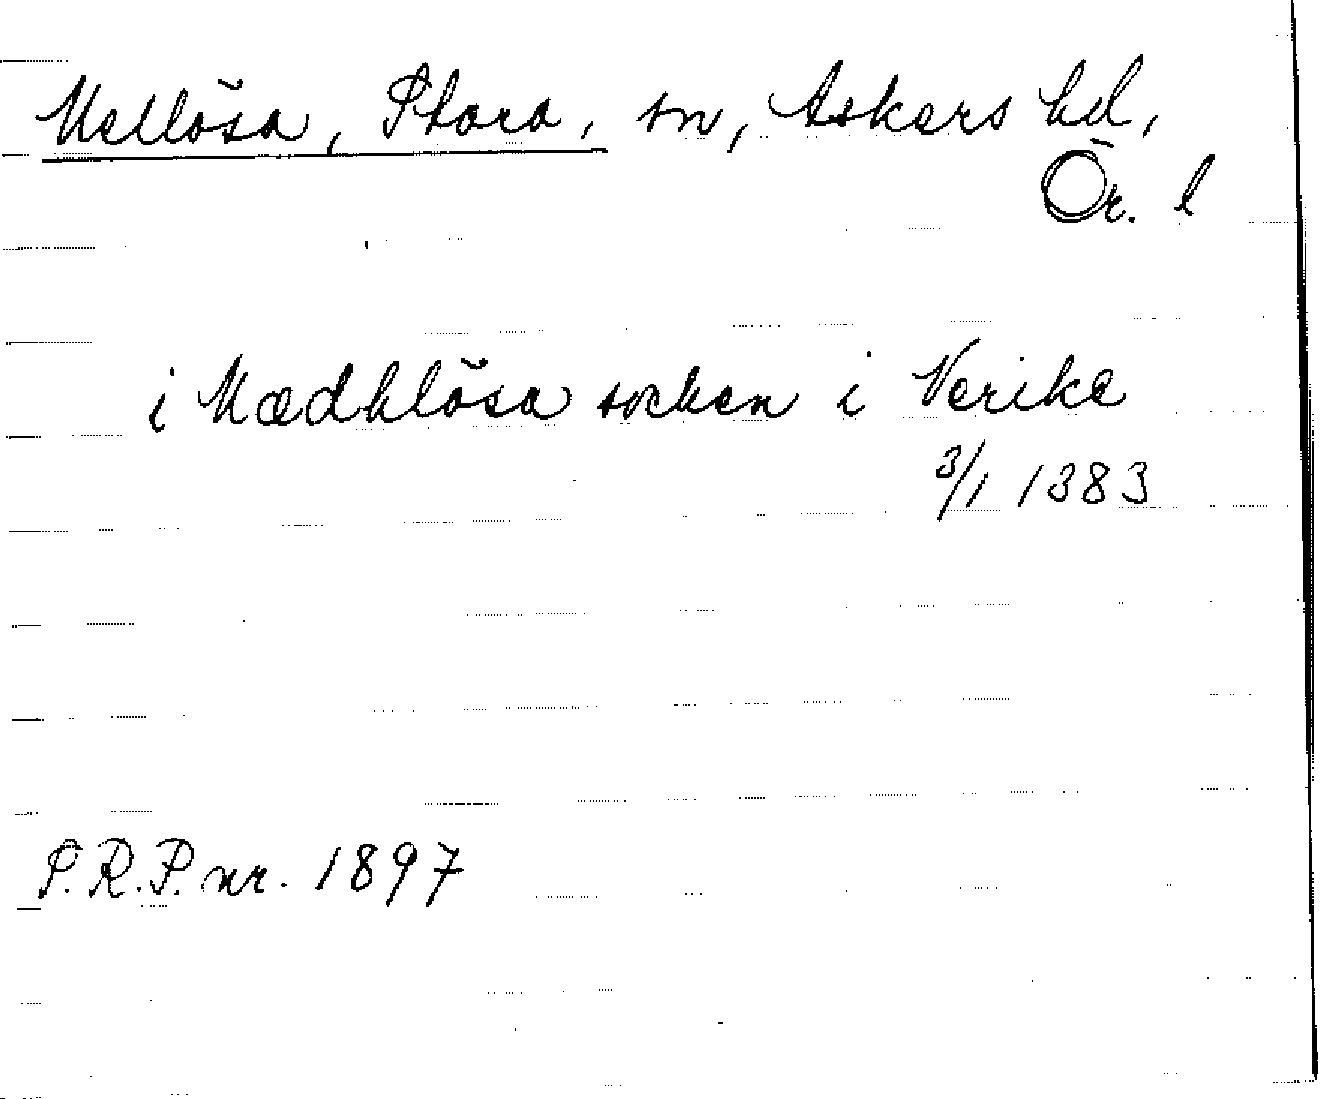 Mellösa, Stora, sn, Askers hd,
Ör. l
i Mædhlösa sochen i Nerike
3/1 1383
S.R.P. nr. 1897